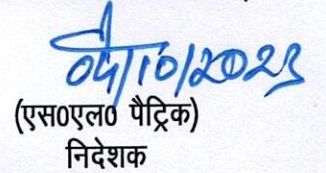 04/10/2023
(एस0एल0 पैट्रिक)
निदेशक